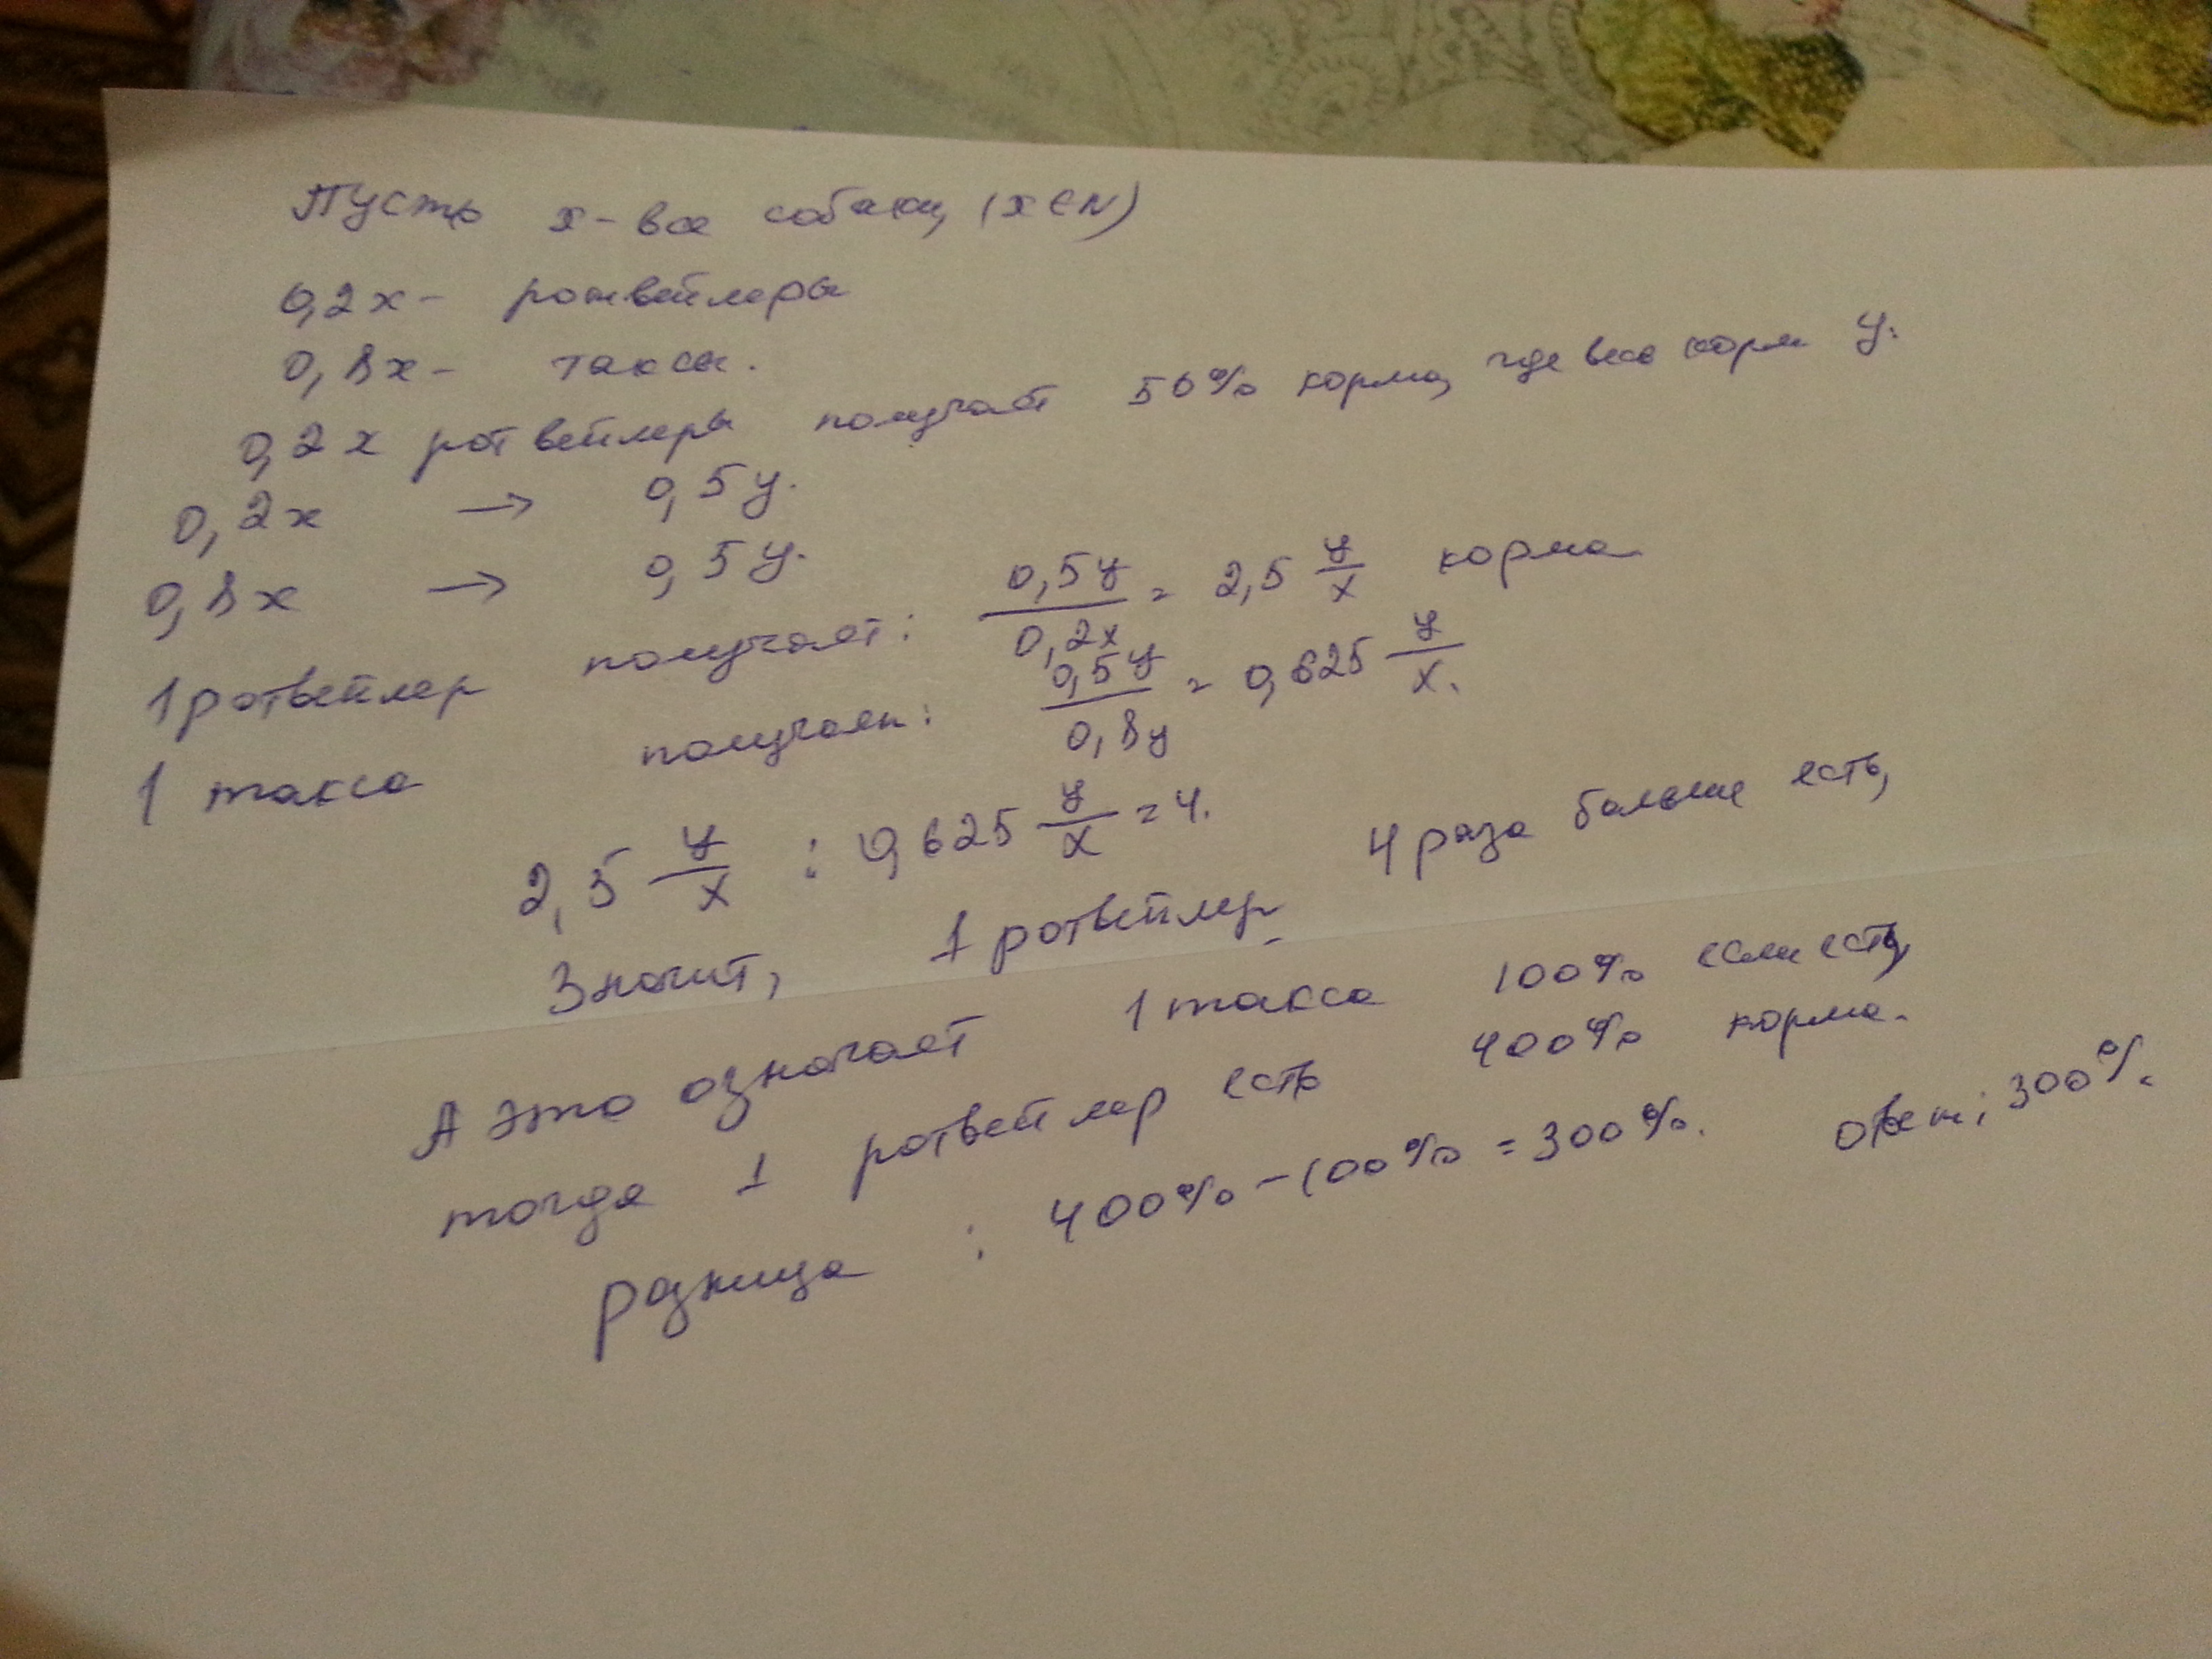 Пусть x - все собаки, (x ∈ N)
0,2x - ротвейлеры
0,8x - таксы.
0,2x ротвейлеры получает 50% корма, где весь корм y.
0,2x → 0,5y.
0,8x → 0,5y.
1 ротвейлер получает: 0,5y/0,2x = 2,5 y/x корма
1 такса получает: 0,5y/0,8y = 0,625 y/x.
2,5 y/x : 0,625 y/x = 4.
Значит, 1 ротвейлер 4 раза больше есть,
А это означает 1 такса 100% если есть,
тогда 1 ротвейлер есть 400% корма.
разница : 400% - 100% = 300%. Ответ: 300%.